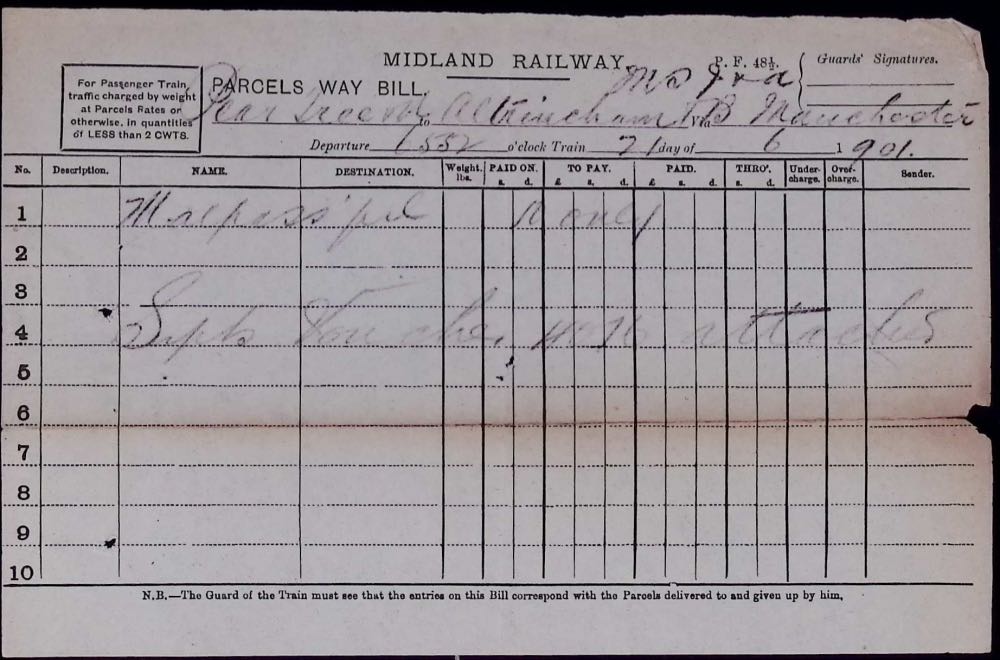 MIDLAND RAILWAY.
P. F. 48½.
Guards' Signatures.
For Passenger Train
traffic charged by weight
at Parcels Rates or
otherwise, in quantities
of LESS than 2 CWTS.
PARCELS WAY BILL.
To Altrincham Via Manchester
Departure o'clock Train 21 day of 6 1901.
No. Description. NAME. DESTINATION. Weight. lbs. PAID ON. s. d. TO PAY. £ s. d. PAID. £ s. d. THRO'. s. d. Under-charge. Over-charge. Sender.
1 only
2
3
4 attached
5
6
7
8
9
10
N.B.—The Guard of the Train must see that the entries on this Bill correspond with the Parcels delivered to and given up by him,